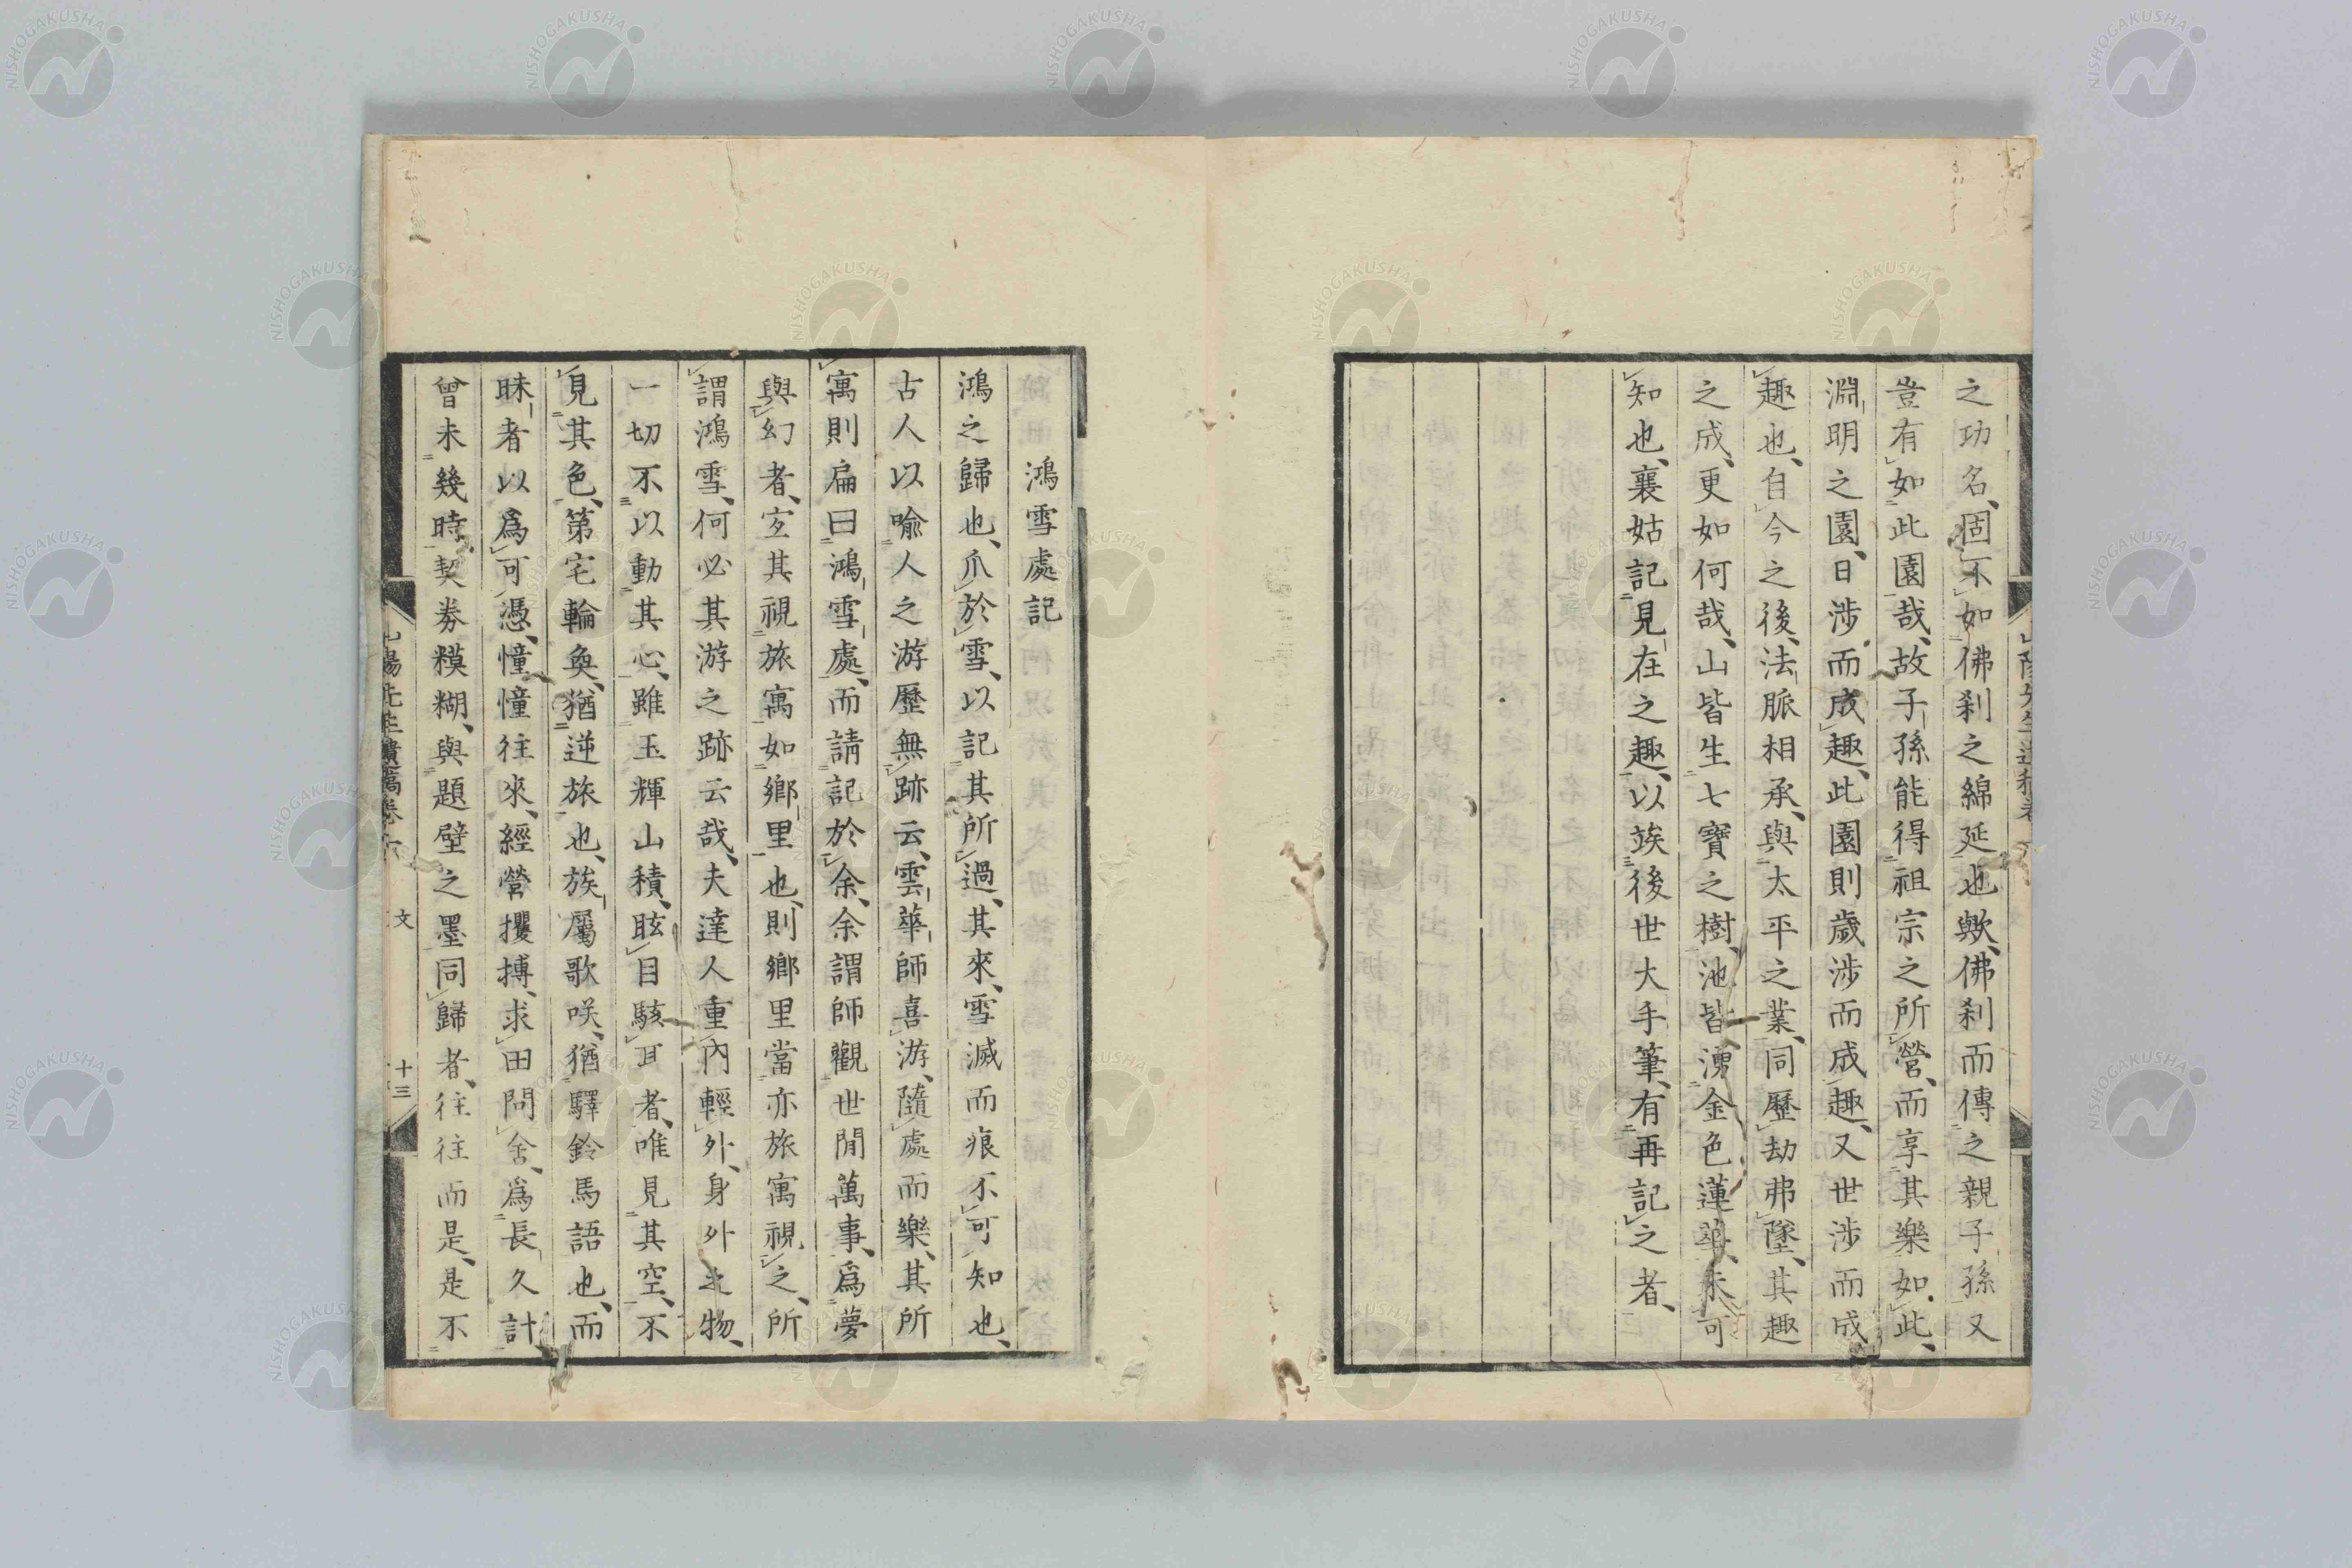 之功名、固不如佛刹之綿延也歟、佛刹而傳之親子孫又
豈有如此園哉、故子孫能得祖宗之所營、而享其樂如此、
淵明之園、日涉而成趣、此園則歲涉而成趣、又世涉而成
趣也、自今之後、法脈相承、與太平之業、同歷劫弗墜、其趣
之成、更如何哉、山皆生七寶之樹、池皆湧金色蓮華、未可
知也、襄姑記見在之趣、以竢後世大手筆、有再記之者、
鴻雪處記
鴻之歸也、爪於雪、以記其所過、其來、雪滅而痕不可知也、
古人以喩人之游歷無跡云、雲華師喜游、隨處而樂、其所
寓則扁曰鴻雪處、而請記於余、余謂師觀世閒萬事、爲夢
與幻者、宜其視旅寓如鄉里也、則鄉里當亦旅寓視之、所
謂鴻雪、何必其游之跡云哉、夫達人重內輕外、身外之物、
一切不以動其心、雖玉輝山積、眩目駭耳者、唯見其空、不
見其色、第宅輪奐、猶逆旅也、族屬歌咲、猶驛鈴馬語也、而
昧者以爲可憑、憧憧往來、經營攫搏、求田問舍、爲長久計
曾未幾時、契券糢糊、與題壁之墨同歸者、往往而是、是不
文
十三
NISHOGAKUSHA